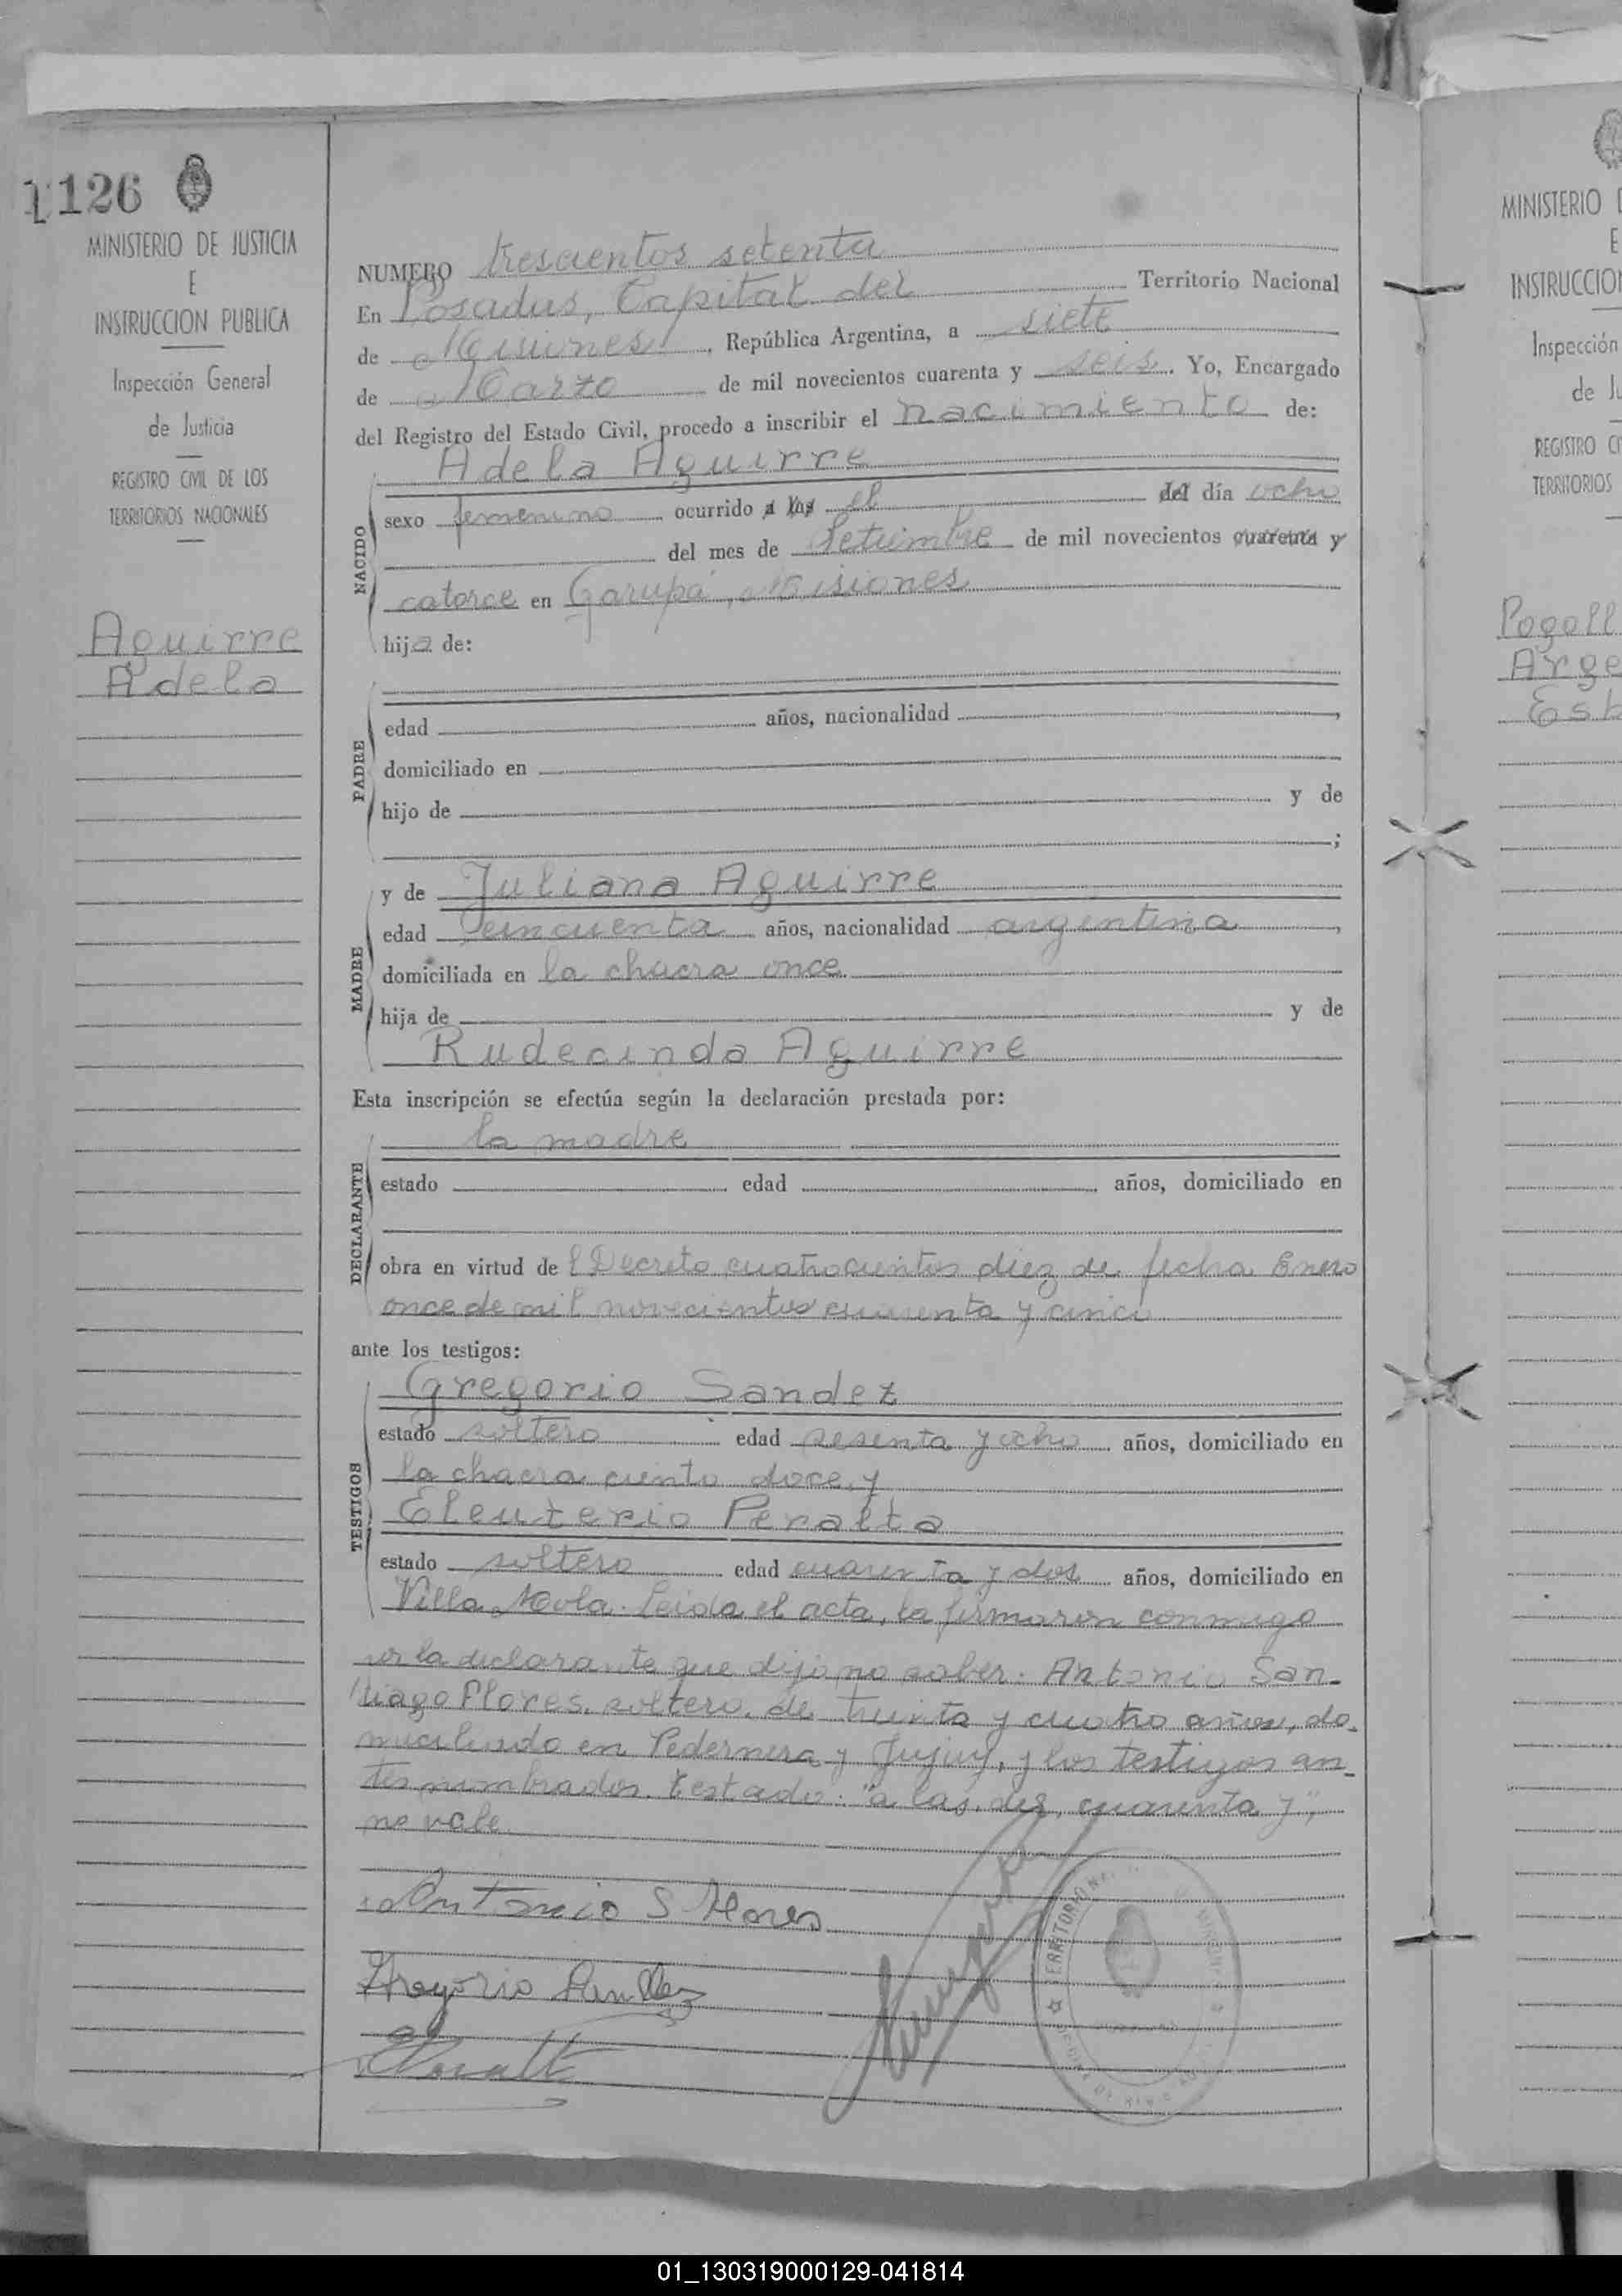 1126
MINISTERIO DE JUSTICIA
E
INSTRUCCION PUBLICA
Inspección General
de Justicia
REGISTRO CIVIL DE LOS
TERRITORIOS NACIONALES
Aguirre
Adela
NUMERO trescientos setenta
En Posadas, Capital del Territorio Nacional
de Misiones, República Argentina, a siete
de Marzo de mil novecientos cuarenta y seis. Yo, Encargado
del Registro del Estado Civil, procedo a inscribir el nacimiento de:
Adela Aguirre
NACIDO
sexo femenino ocurrido a las el del día ocho
del mes de Setiembre de mil novecientos cuarenta y
catorce en Garupá, Misiones
hija de:
PADRE
edad años, nacionalidad ,
domiciliado en
hijo de y de
;
MADRE
y de Juliana Aguirre
edad cincuenta años, nacionalidad argentina,
domiciliada en la chacra once
hija de y de
Rudecinda Aguirre
Esta inscripción se efectúa según la declaración prestada por:
DECLARANTE
la madre
estado edad años, domiciliado en
obra en virtud del Decreto cuatrocientos diez de fecha Enero
once de mil novecientos cuarenta y cinco
ante los testigos:
TESTIGOS
Gregorio Sandez
estado soltero edad sesenta y ocho años, domiciliado en
la chacra ciento doce y
Eleuterio Peralta
estado soltero edad cuarenta y dos años, domiciliado en
Villa Mola. Leida el acta, la firmaron conmigo
por la declarante que dijo no saber: Antonio San-
tiago Flores, soltero, de treinta y cuatro años, do-
miciliado en Pedernera y Jujuy, y los testigos an-
tes nombrados. Testado: "a las, del, cuarenta y",
no vale.
Antonio S Flores
Gregorio Sandez
TERRITORIO
MINISTERIO D
E
INSTRUCCION
Inspección
de Ju
REGISTRO CI
TERRITORIOS
Pogoll
Arge
Est
01_130319000129-041814